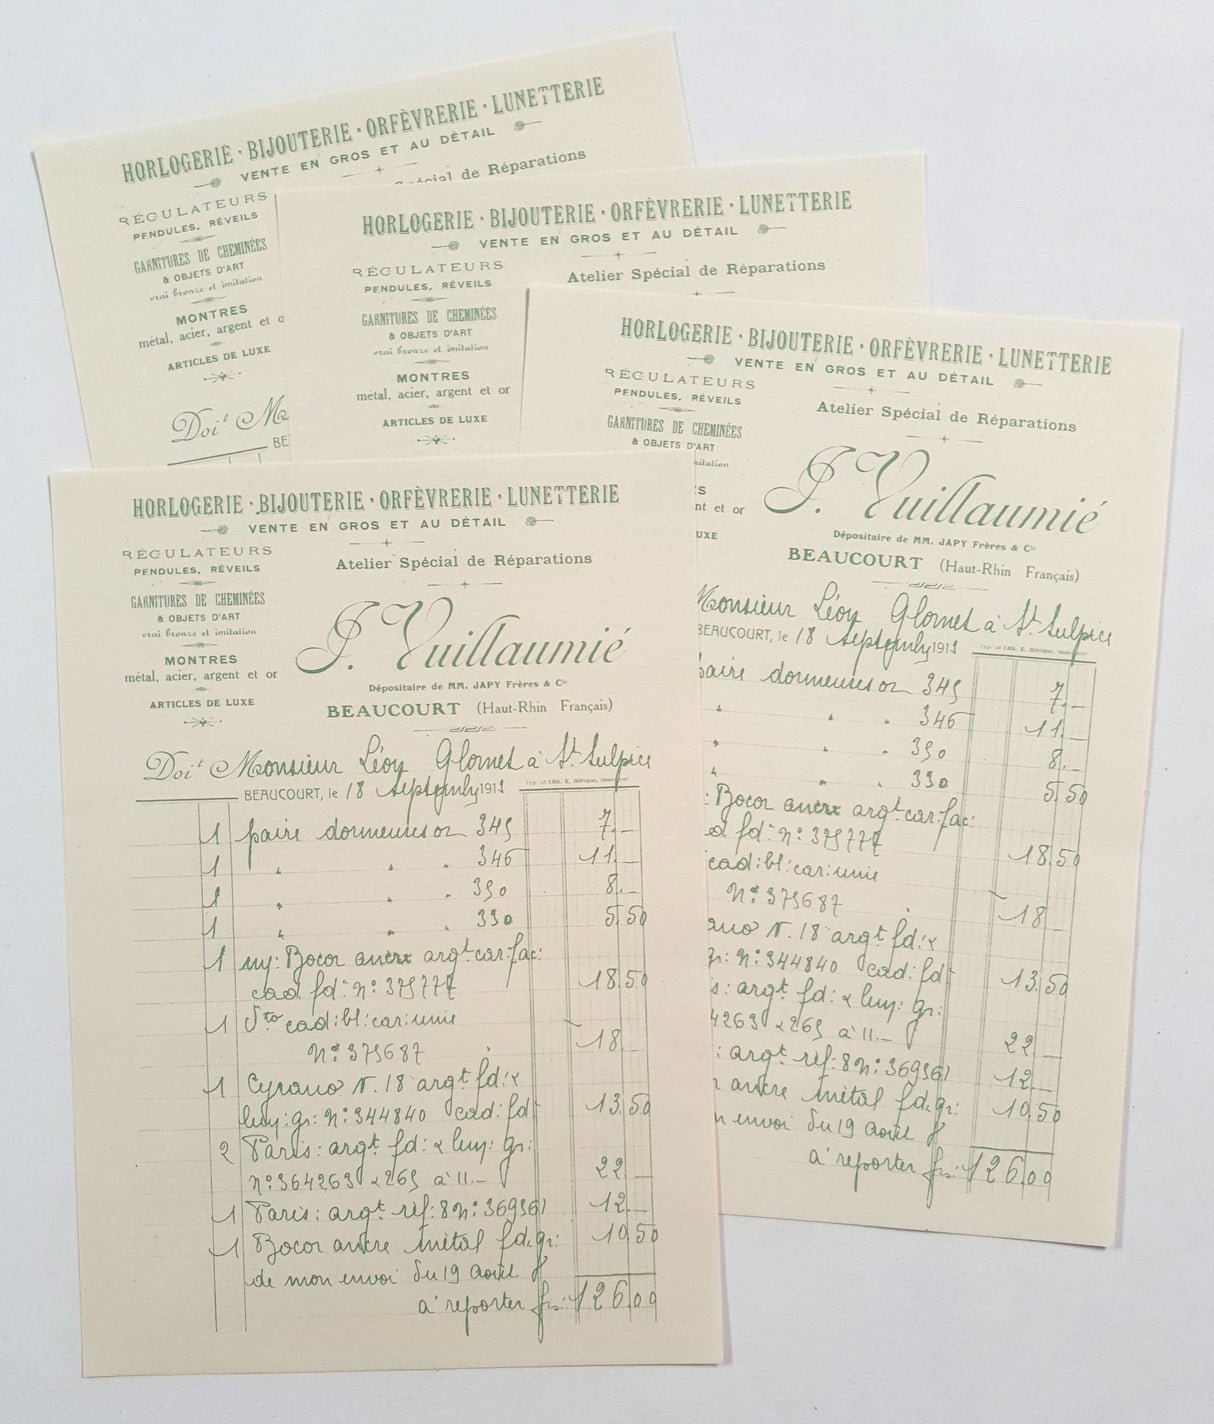 HORLOGERIE · BIJOUTERIE · ORFÈVRERIE · LUNETTERIE
VENTE EN GROS ET AU DÉTAIL
Spécial de Réparations
RÉGULATEURS
PENDULES, RÉVEILS
GARNITURES DE CHEMINÉES
& OBJETS D'ART
vrai bronze et imitation
MONTRES
métal, acier, argent et o
ARTICLES DE LUXE
Doit M
BE
HORLOGERIE · BIJOUTERIE · ORFÈVRERIE · LUNETTERIE
VENTE EN GROS ET AU DÉTAIL
RÉGULATEURS
PENDULES, RÉVEILS
Atelier Spécial de Réparations
GARNITURES DE CHEMINÉES
& OBJETS D'ART
vrai bronze et imitation
MONTRES
métal, acier, argent et or
ARTICLES DE LUXE
HORLOGERIE · BIJOUTERIE · ORFÈVRERIE · LUNETTERIE
VENTE EN GROS ET AU DÉTAIL
RÉGULATEURS
PENDULES, RÉVEILS
Atelier Spécial de Réparations
GARNITURES DE CHEMINÉES
& OBJETS D'ART
imitation
S
nt et or
UXE
J. Vuillaumié
Dépositaire de MM. JAPY Frères & Cie
BEAUCOURT (Haut-Rhin Français)
Monsieur Léon Glomet à St Sulpice
BEAUCOURT, le 18 septembre 1911
paire dormeuses or 345 7.—
" " " 346 11.—
" " " 350 8.—
" " " 330 5.50
: Bocor ancre argt car: fac:
d fd: No: 375777 18.50
cad: bl: car: unie
No: 375687 18
ano N. 18 argt fd: &
gr: No: 344840 cad: fd: 13.50
s: argt fd: & luy: gr:
4263 & 265 à 11.— 22.—
: argt réf: 8 No: 369361 12.—
r ancre métal fd. gr: 10.50
n envoi du 19 août
à reporter frs: 126.00
HORLOGERIE · BIJOUTERIE · ORFÈVRERIE · LUNETTERIE
VENTE EN GROS ET AU DÉTAIL
RÉGULATEURS
PENDULES, RÉVEILS
Atelier Spécial de Réparations
GARNITURES DE CHEMINÉES
& OBJETS D'ART
vrai bronze et imitation
MONTRES
métal, acier, argent et or
ARTICLES DE LUXE
J. Vuillaumié
Dépositaire de MM. JAPY Frères & Cie
BEAUCOURT (Haut-Rhin Français)
Doit Monsieur Léon Glomet à St Sulpice
BEAUCOURT, le 18 septembre 1911
1 paire dormeuses or 345 7.—
1 " " " 346 11.—
1 " " " 350 8.—
1 " " " 330 5.50
1 luy: Bocor ancre argt car: fac:
cad fd: No: 375777 18.50
1 dto cad: bl: car: unie
No: 375687 18
1 Cyrano N. 18 argt fd: &
luy: gr: No: 344840 cad: fd: 13.50
2 Paris: argt fd: & luy: gr:
No: 364263 & 265 à 11.— 22.—
1 Paris: argt réf: 8 No: 369361 12.—
1 Bocor ancre métal fd. gr: 10.50
de mon envoi du 19 août
à reporter frs: 126.00